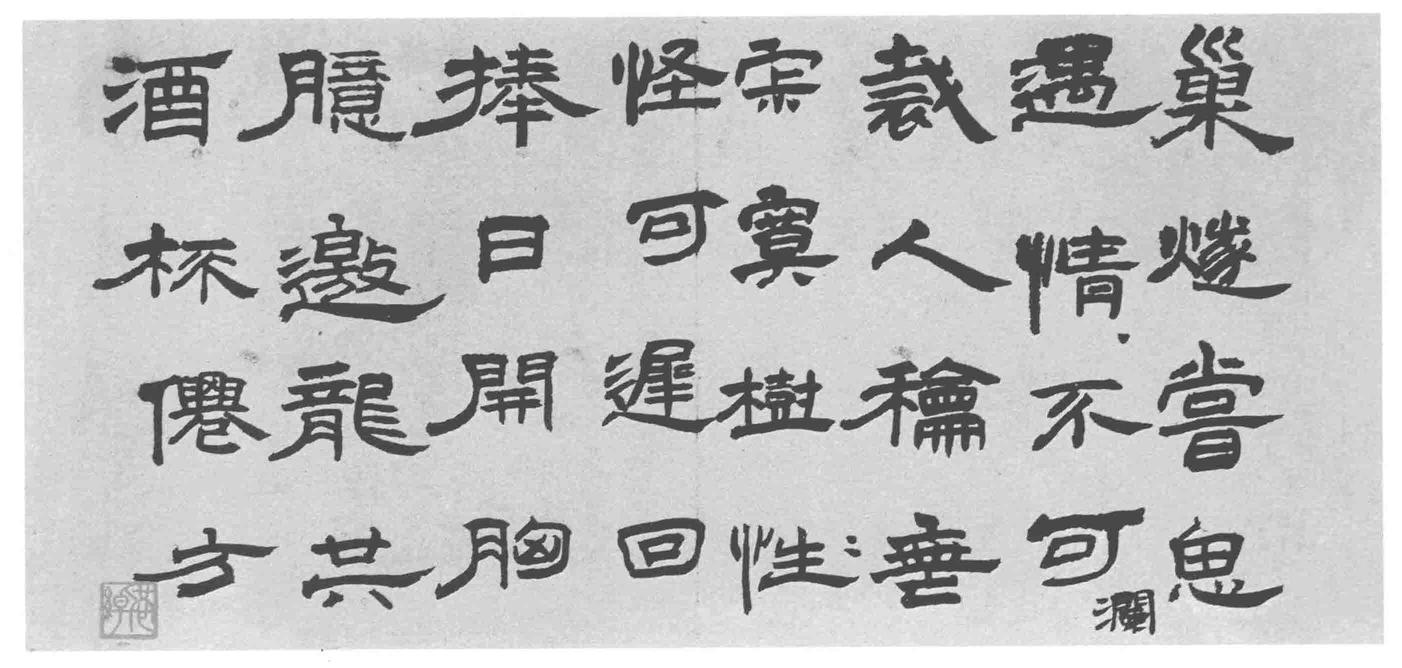 巢燧嘗思
遇情不可瀾
裁人龢垂
寂寞樹性
怪可遲回
捧日開胸
臆邀龍共
酒杯僊方